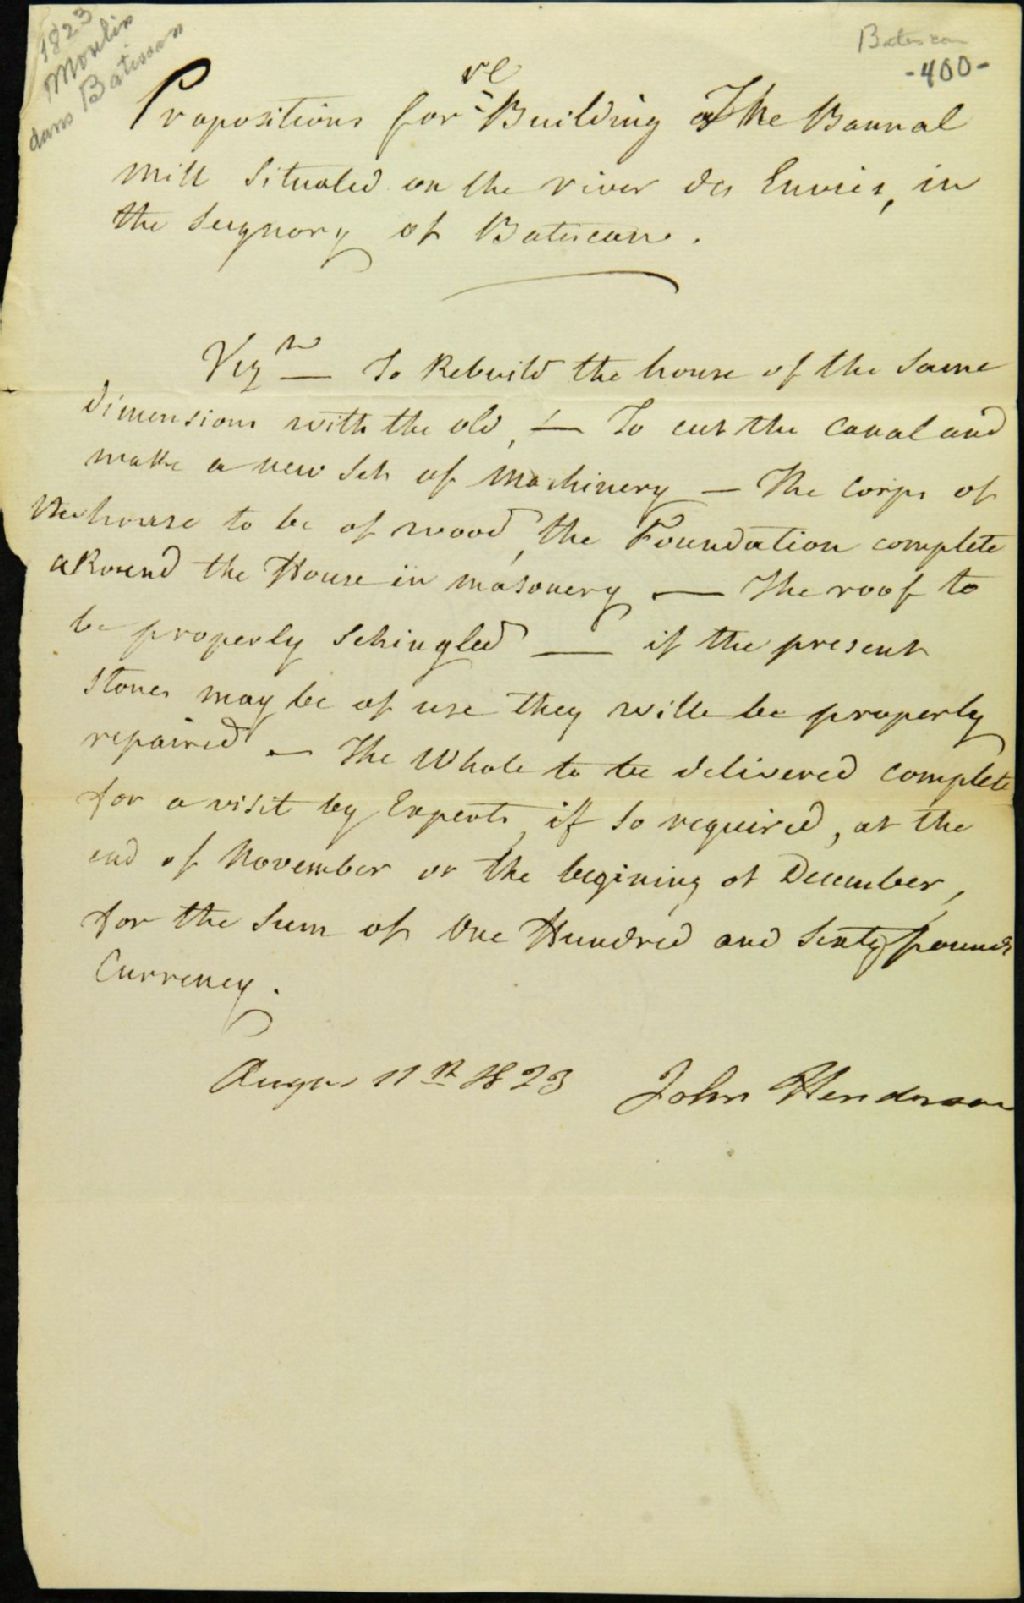 1823
Moulin
dans Batiscan
Batiscan
-400-
Propositions for re-Building The Bannal
mill Situated on the river des Envies, in
the Seignory of Batiscan.
Viz — To Rebuild the house of the Same
dimensions with the old, — To cut the Canal and
make a new Set of Machinery — The corps of
the house to be of wood, the Foundation complete
aRound the House in masonery — The roof to
be properly Schingled — if the present
Stones may be of use they will be properly
repaired — The Whole to be delivered complete
for a visit by Experts, if So required, at the
end of November or the begining of December,
for the Sum of One Hundred and Sixty pounds
Currency.
11st 1823 John Henderson